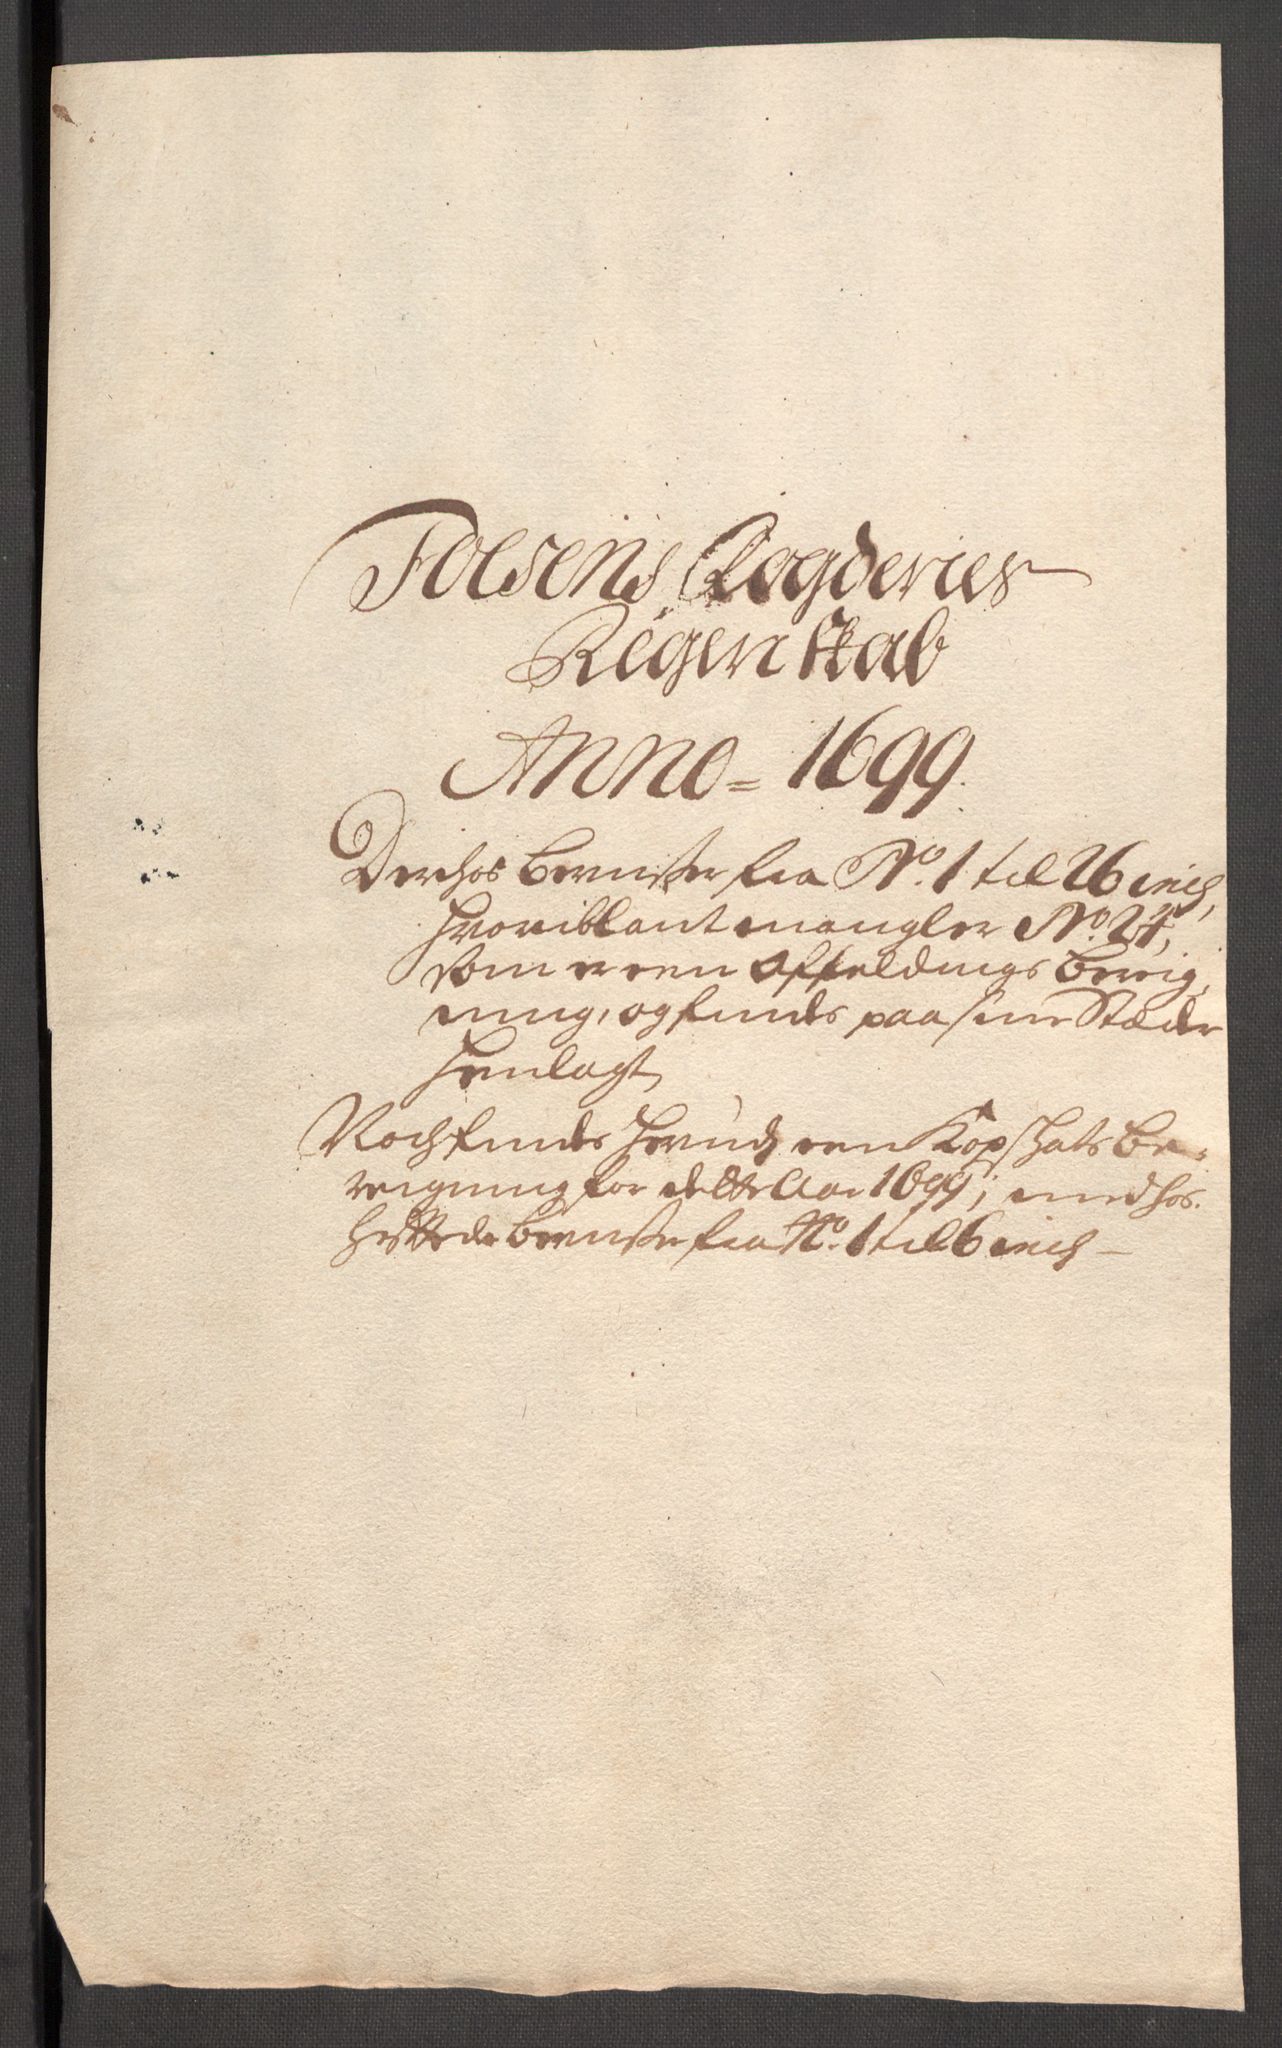 Fosens Fogderies
Regenskab
Anno = 1699.
Derhos beviser fra No. 1 til 26 incl,
hvoriblant mangler No. 24,
som er en Affeldings bereig,
ning, og findes paa sine Stæder
henlagt
Noch findes herved een Kopschats be-
reigning for dette Aar 1699, med hos-
heftede beviser fra No. 1 til 6 incl